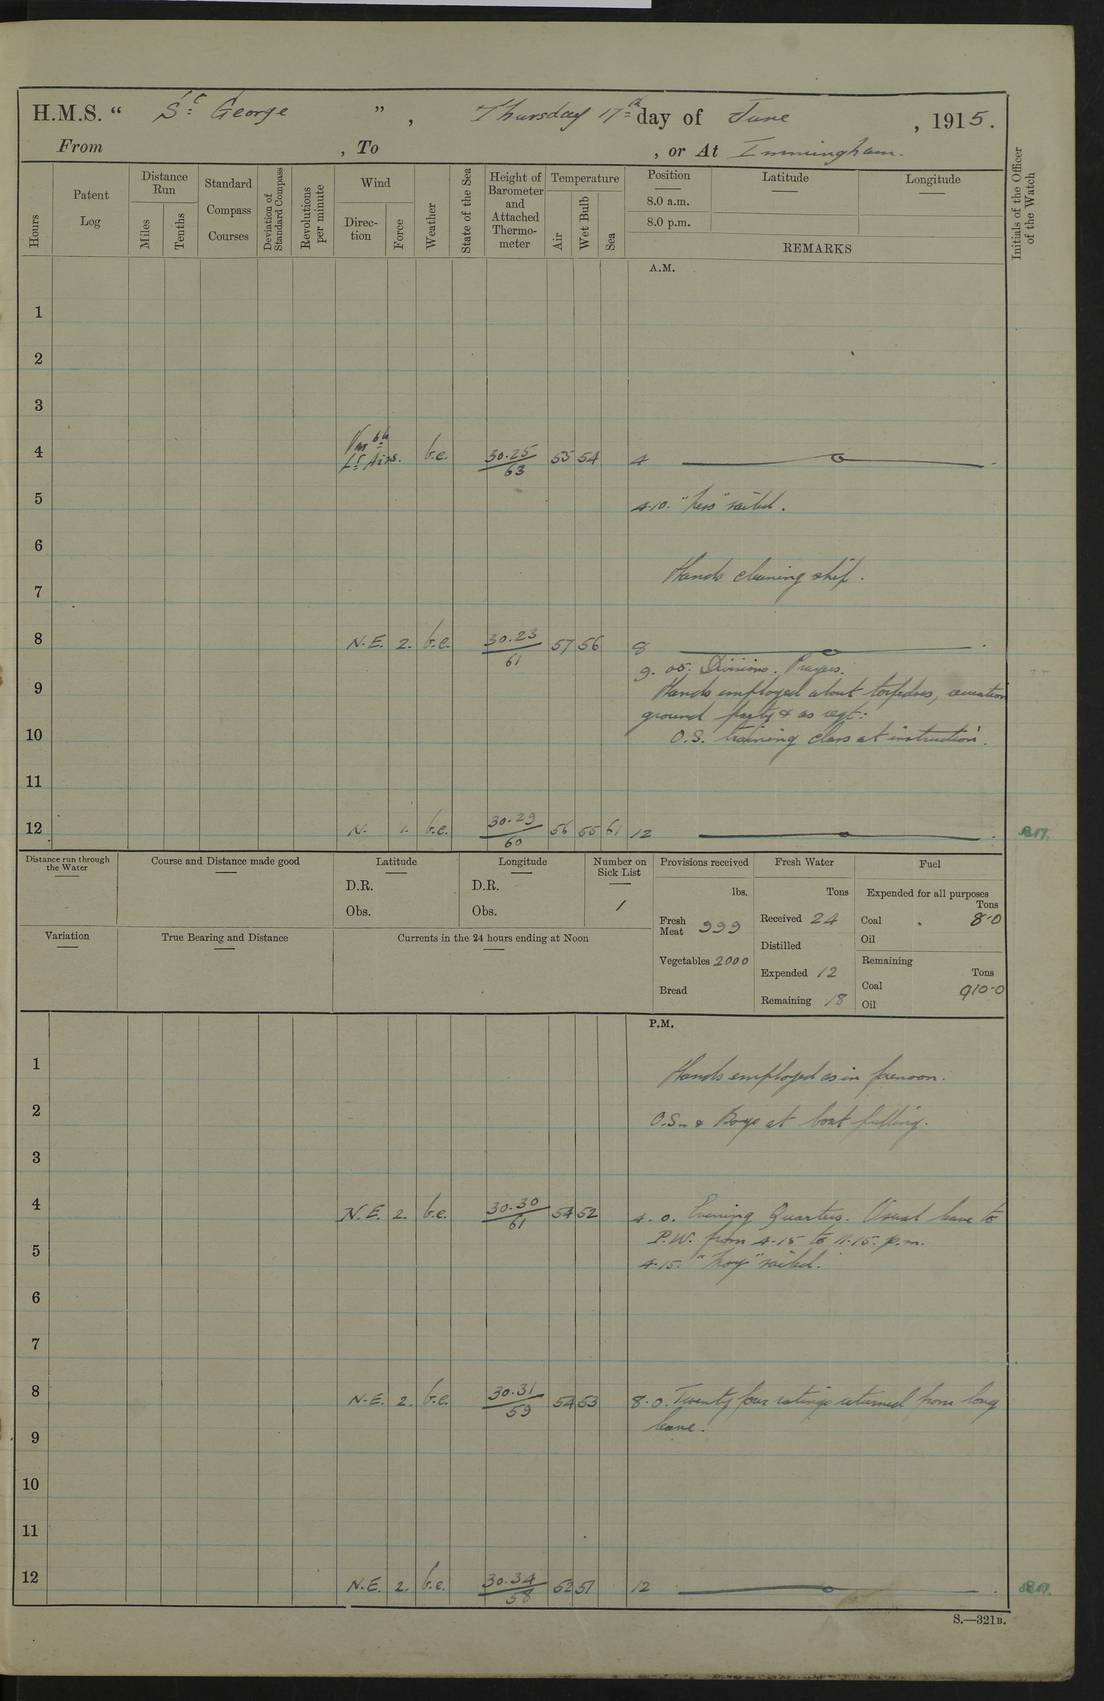 H.M.S. “ St George ” , Thursday 17th day of June , 1915.
From , To , or At Immingham.
Hours
Patent Log
Distance Run
Miles
Tenths
Standard Compass Courses
Deviation of Standard Compass
Revolutions per minute
Wind
Direction
Force
Weather
State of the Sea
Height of Barometer and Attached Thermometer
Temperature
Air
Wet Bulb
Sea
Position
8.0 a.m.
8.0 p.m.
Latitude
Longitude
REMARKS
Initials of the Officer of the Watch
A.M.
1
2
3
4 Vble Lt Airs. b.c. 30.25/63 55 54 4
5 4.10. " " sailed.
6
Hands cleaning ship.
7
8 N.E. 2. b.c. 30.23/61 57 56 8
9.05. Divisions. Prayers.
9 Hands employed about torpedoes,
ground party & as reqt:
10 O.S. training class at instruction.
11
12 N. 1. b.c. 30.29/60 56 55 61 12
Distance run through the Water
Course and Distance made good
Latitude
D.R.
Obs.
Longitude
D.R.
Obs.
Number on Sick List
1
Provisions received
lbs.
Fresh Meat 999
Vegetables 2000
Bread
Fresh Water
Tons
Received 24
Distilled
Expended 12
Remaining 18
Fuel
Expended for all purposes
Tons
Coal 8.0
Oil
Remaining
Tons
Coal 910.0
Oil
Variation
True Bearing and Distance
Currents in the 24 hours ending at Noon
P.M.
1 Hands employed as in forenoon.
2 O.S. & Boys at boat pulling.
3
4 N.E. 2. b.c. 30.30/61 54 52 4.0. Evening Quarters. Usual leave to
P.W. from 4.15 to 11.15. p.m.
5 4.15. " " sailed.
6
7
8 N.E. 2. b.c. 30.31/59 54 53 8.0. Twenty four ratings returned from long
leave.
9
10
11
12 N.E. 2. b.c. 30.34/58 52 51 12
S.—321B.